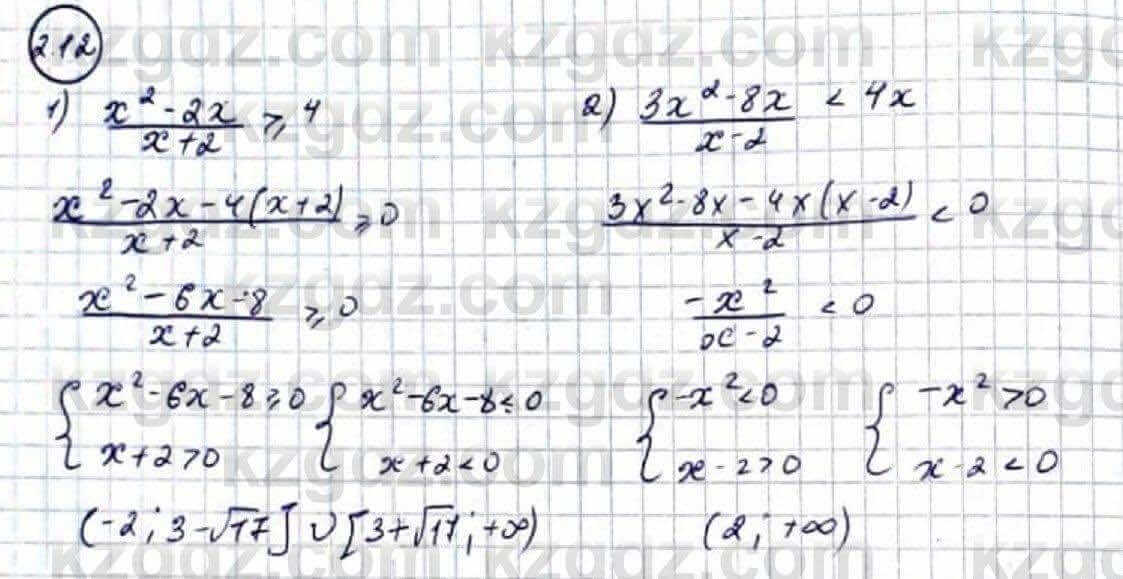 2.12
1) (x² - 2x)/(x+2) ⩾ 4
(x² - 2x - 4(x+2))/(x+2) ⩾ 0
(x² - 6x - 8)/(x+2) ⩾ 0
{ x² - 6x - 8 ⩾ 0 { x² - 6x - 8 ⩽ 0
x + 2 > 0 x + 2 < 0
(-2; 3 - √17] ∪ [3 + √17; +∞)
2) (3x² - 8x)/(x - 2) < 4x
(3x² - 8x - 4x(x - 2))/(x - 2) < 0
(-x²)/(x - 2) < 0
{ -x² < 0 { -x² > 0
x - 2 > 0 x - 2 < 0
(2; +∞)
kzgdz.com